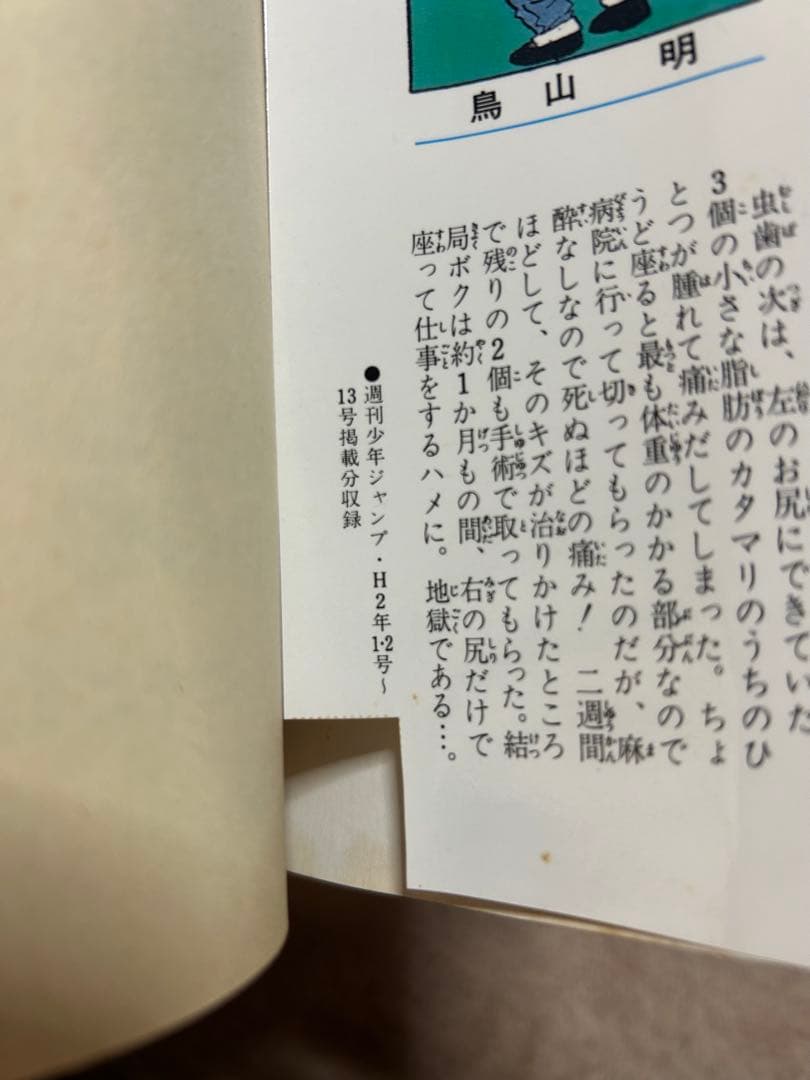 鳥山 明
虫歯の次は、左のお尻にできていた
3個の小さな脂肪のカタマリのうちのひ
とつが腫れて痛みだしてしまった。ちょ
うど座ると最も体重のかかる部分なので
病院に行って切ってもらったのだが、麻
酔なしなので死ぬほどの痛み! 二週間
ほどして、そのキズが治りかけたところ
で残りの2個も手術で取ってもらった。結
局ボクは約1か月もの間、右の尻だけで
座って仕事をするハメに。地獄である…。
●週刊少年ジャンプ・H2年1・2号~
13号掲載分収録